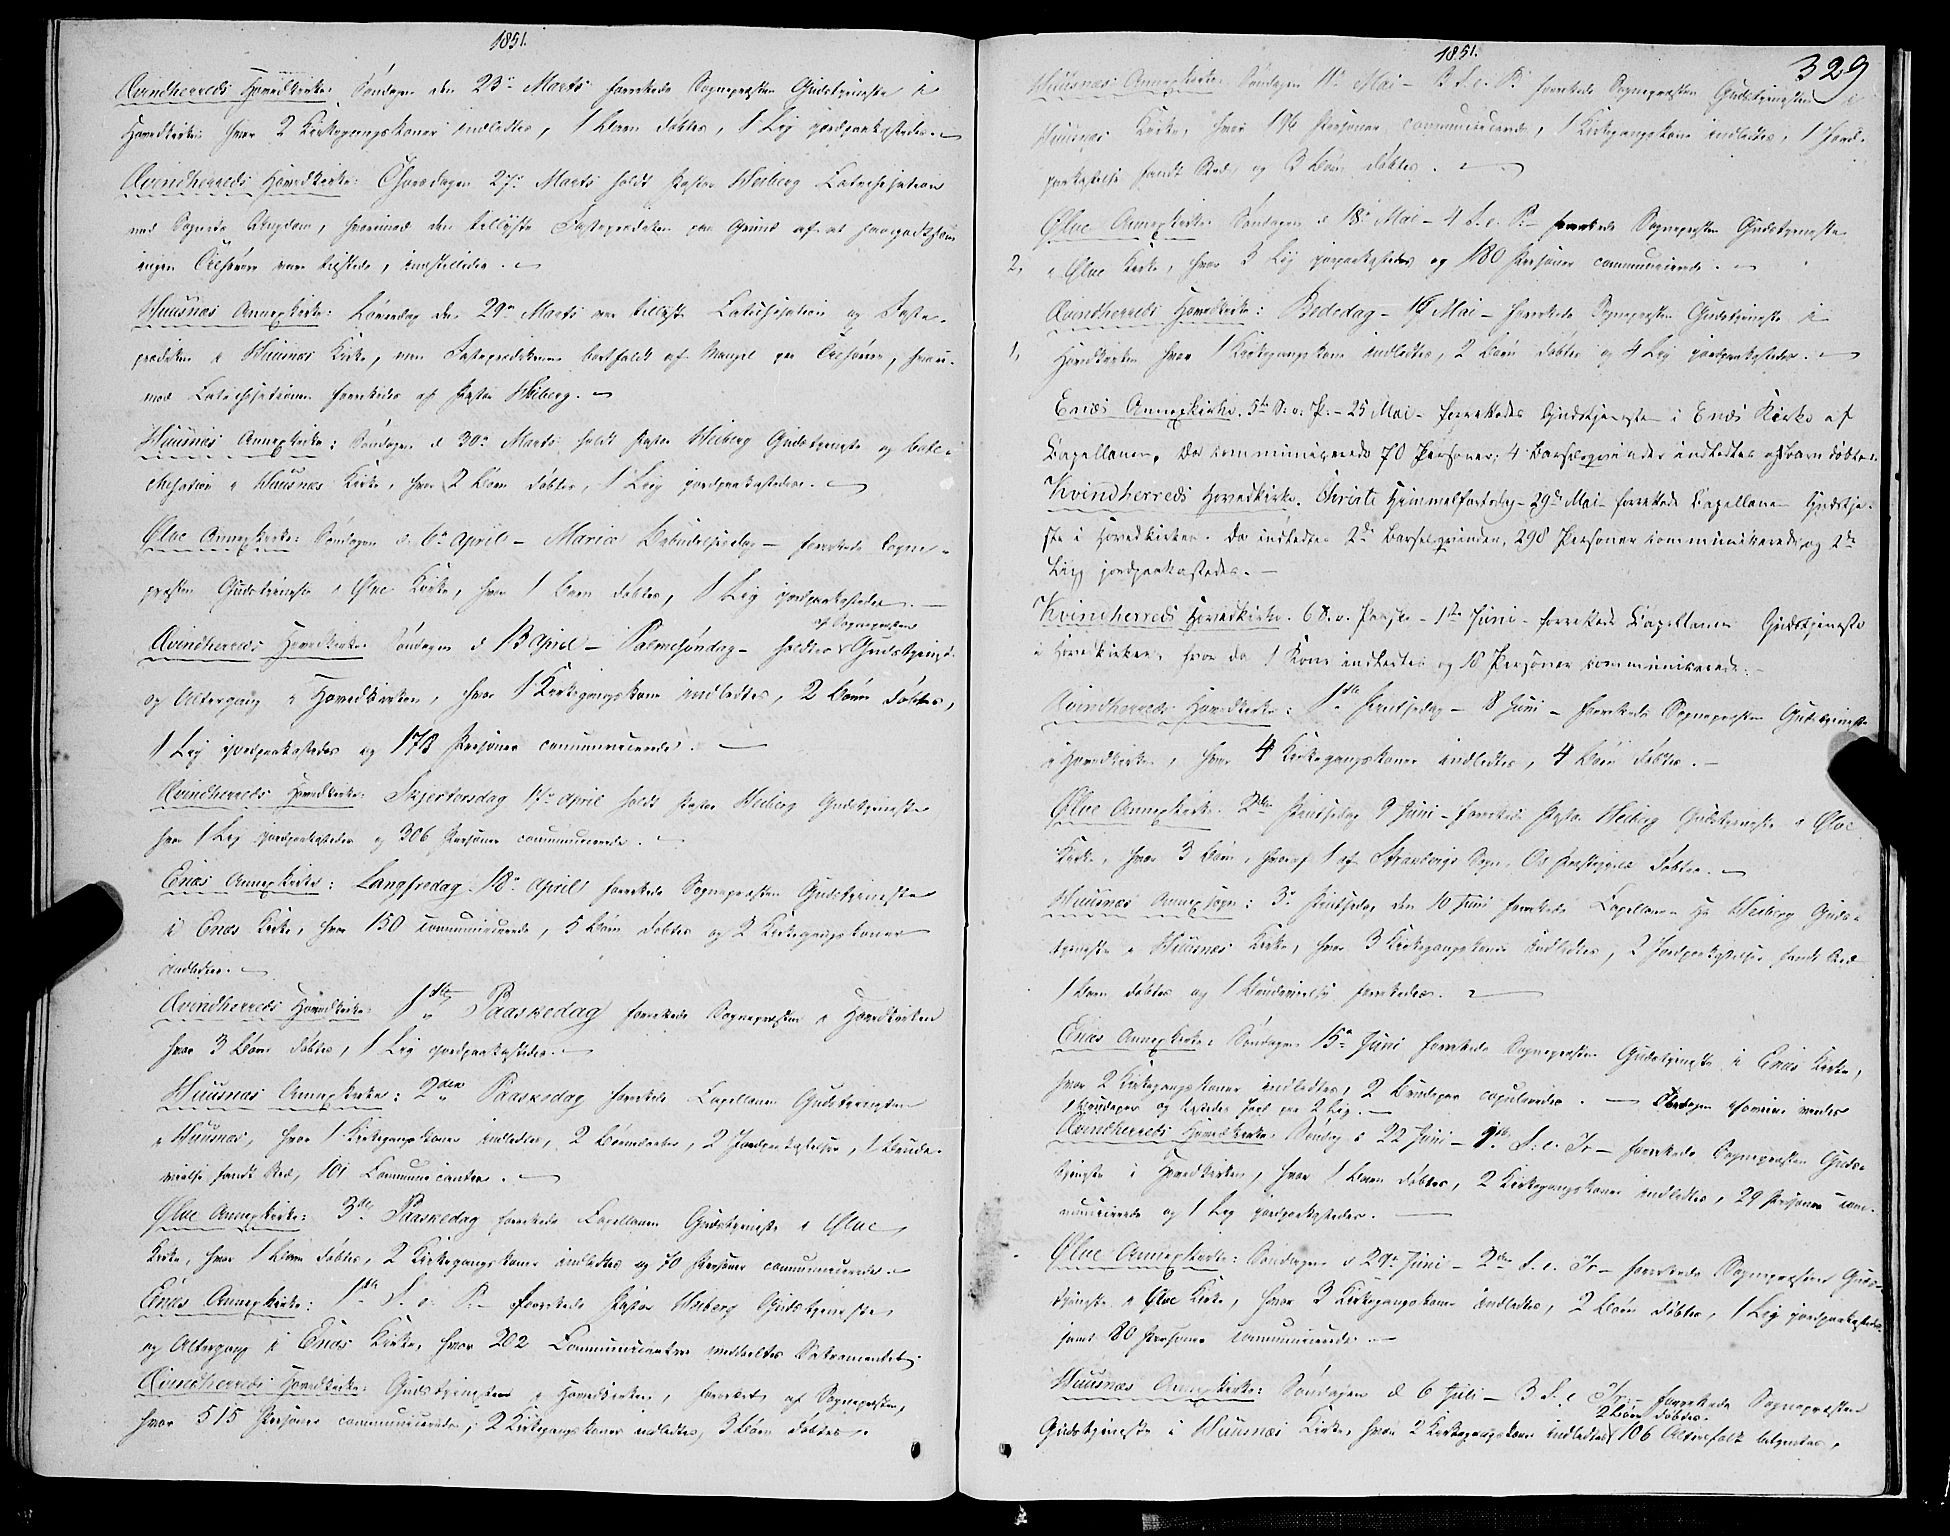 1851.
Kvindherreds Hovedkirke: Søndagen den 23de Marts forrettede Sognepræsten Gudstjeneste i
Hovedkirken hvor 2 Kirkegangskoner indledtes, 1 Barn døbtes, 1 Liig jordpaakastedes.
Kvindherreds Hovedkirke: Thorsdagen 27de Marts holdt Pastor Heiberg Catechisation
med Sognets Ungdom, hvorimod den tillyste Fasteprædiken paa Grund af at saagodtsom
ingen Tilhørere vare tilstede, indstilledes.
Huusnæs Annexkirke: Løverdag den 29de Marts var tillyst Catechisation og Faste-
prædiken i Huusnæs Kirke, men Fasteprædikenen bortfaldt af Mangel paa Tilhørere, hvori-
mod Catechisationen forrettedes af Pastor Heiberg.
Huusnæs Annexkirke: Søndagen d 30te Marts holdt Pastor Heiberg Gudstjeneste og Cate-
chisation i Huusnæs Kirke, hvor 2 Børn døbtes, 1 Liig jordpaakastedes.
Ølve Annexkirke: Søndagen d. 6te April - Mariæ Bebudelsesdag - forrettede Sogne-
præsten Gudstjeneste i Ølve Kirke, hvor 1 Barn døbtes, 1 Liig jordpaakastedes.
af Sognepræsten
Kvindherreds Hovedkirke Søndagen d 13 April - Palmesøndag - holdtes Gudstjeneste
og Altergang i Hovedkirken, hvor 1 Kirkegangskone indledtes, 2 Børn døbtes,
1 Liig jordpaakastedes og 178 Personer communicerede.
Kvindherreds Hovedkirke: Skjertorsdag 17de April holdt Pastor Heiberg Gudstjeneste
hvor 1 Liig jordpaakastedes og 306 Personer communicerede.
Enæs Annexkirke: Langfredag 18de April forrettede Sognepræsten Gudstjeneste
i Enæs Kirke, hvor 150 communicerede, 5 Børn døbtes og 2 Kirkegangskoner
indledtes.
Kvindherreds Hovedkirke 1ste Paaskedag forrettede Sognepræsten i Hovedkirken
hvor 3 Børn døbtes, 1 Liig jordpaakastedes.
Huusnæs Annexkirke: 2den Paaskedag forrettede Capellanen Gudstjenesten
i Huusnæs, hvor 1 Kirkegangskone indledtes, 2 Børn døbtes, 2 Jordpaakastelser, 1 Brude-
vielse fandt Sted, 101 Communicanter.
Ølve Annexkirke: 3die Paaskedag forrettede Capellanen Gudstjeneste i Ølve
Kirke, hvor 1 Barn døbtes, 2 Kirkegangskoner indledtes og 70 Personer communicerede.
Enæs Annexkirke: 1ste S. e. P. - forrettede Pastor Heiberg Gudstjeneste
og Altergang i Enæs Kirke, hvor 202 Communicanter meddeeltes Sakramentet.
Kvindherreds Hovedkirke: Gudstjenesten i Hovedkirken, forrettet af Sognepræsten,
hvor 515 Personer communicerede, 2 Kirkegangskoner indledtes, 3 Børn døbtes.
1851.
329
Huusnæs Annexkirke Søndagen 11te Mai - 3 S. e. P. forrettede Sognepræsten Gudstjenesten i
Huusnæs Kirke, hvor 196 Personer communicerede, 1 Kirkegangskone indledtes, 1 Jord-
paakastelse fandt Sted og 3 Børn døbtes.
Ølve Annexkirke Søndagen d 18de Mai - 4 S. e. P. - forrettede Sognepræsten Gudstjeneste
2, i Ølve Kirke, hvor 3 Liig jordpaakastedes og 180 Personer communicerede.
Kvindherreds Hovedkirke: Bededag - 16 Mai - forrettede Sognepræsten Gudstjeneste i
1, Hovedkirken hvor 1 Kirkegangskone indledtes, 2 Børn døbtes og 4 Liig jordpaakastedes.
Enæs Annexkirke. 5te S. e. P. - 25 Mai - forrettedes Gudstjenesten i Enæs Kirke af
Capellanen. Der communicerede 70 Personer; 4 Barselqvinder indledtes og Barn døbtes.
Kvindherreds Hovedkirke. Christi Himmelfartsdag - 29de Mai - forrettede Capellanen Gudstje-
ste i Hovedkirken. Da indledtes 2de Barselqvinder, 298 Personer communicerede og 2de
Liig jordpaakastedes.
Kvindherreds Hovedkirke. 6 S. e. Paaske - 1ste Juni - forrettede Capellanen Gudstjeneste
i Hovedkirken, hvor da 1 Kone indledtes og 10 Personer communicerede.
Kvindherreds Hovedkirke: 1ste Pintsedag - 8 Juni - forrettede Sognepræsten Gudstjeneste
i Hovedkirken, hvor 4 Kirkegangskoner indledtes, 4 Børn døbtes.
Ølve Annexkirke. 2den Pintsedag 9 Juni - forrettede Pastor Heiberg Gudstjeneste i Ølve
Kirke, hvor 3 Børn, hvoraf 1 af Strandvigs Sogn, Os Præstegield døbtes.
Huusnæs Annexsogn: 3die Pintsedag den 10 Juni forrettede Capellanen Hr Heiberg Guds-
tjeneste i Huusnæs Kirke, hvor 3 Kirkegangskoner indledtes, 2 Jordpaakastelser fandt Sted
1 Barn døbtes og 1 Brudevielse forrettedes.
Enæs Annexkirke: Søndagen 15de Juni forrettede Sognepræsten Gudstjeneste i Enæs Kirke,
hvor 2 Kirkegangskoner indledtes, 2 Brudepar copuleredes. -
1 Brudepar og kastedes Jord paa 2 Liig.
Kvindherreds Hovedkirke Søndag d 22 Juni - 1ste S. e. Tr - forrettede Sognepræsten Guds-
tjeneste i Hovedkirken, hvor 1 Barn døbtes, 2 Kirkegangskoner indledtes, 29 Personer com-
municerede og 1 Liig jordpaakastedes.
Ølve Annexkirke: Søndagen d 29de Juni - 2den S. e. Tr - forrettede Sognepræsten Guds-
tjeneste i Ølve Kirke, hvor 3 Kirkegangskoner indledtes, 2 Børn døbtes, 1 Liig jordpaakastedes
samt 80 Personer communicerede.
Huusnæs Annexkirke: Søndagen d 6 Juli - 3 S. e Tr. - forrettede Sognepræsten
2 Børn døbtes.
Gudstjeneste i Huusnæs Kirke, hvor 2 Kirkegangskoner indledtes, 106 Altersfolk betjentes.